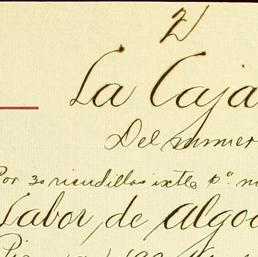 2
La Caja
Del numer
Por 30 riendillas ixtle pº m
Labor de algo